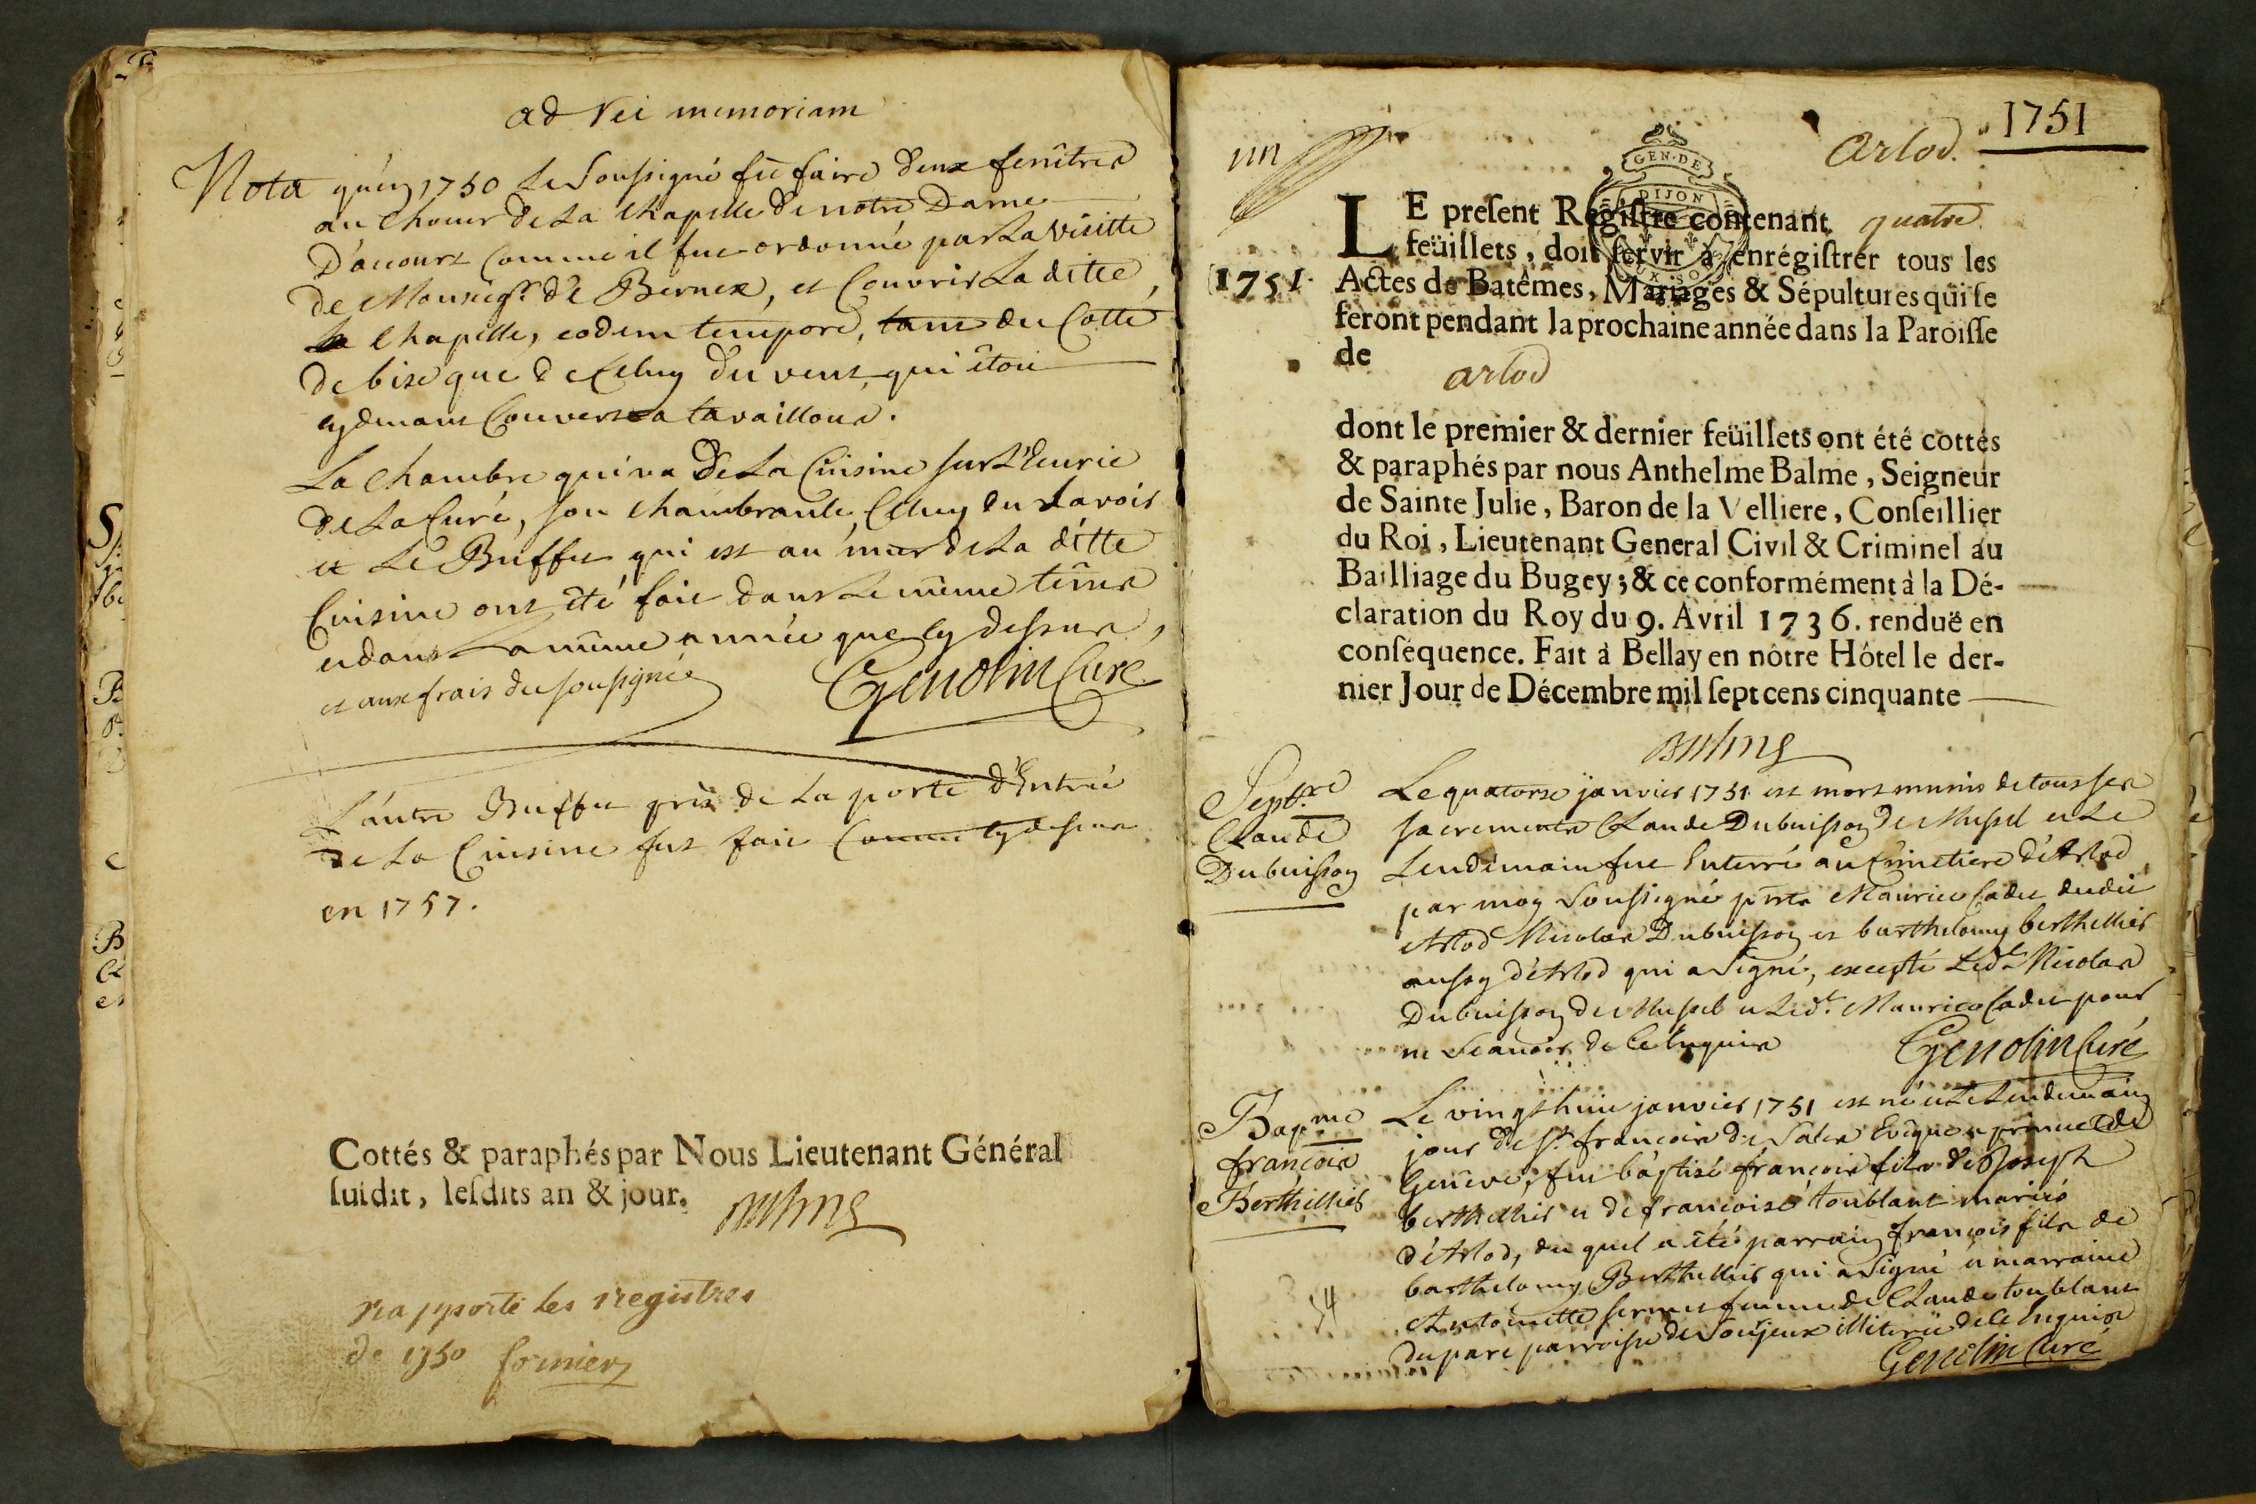 ad rei memoriam
Nota qu'en 1750 le soussigné fit faire deux fenêtres
au Choeur de la Chapelle de notre Dame
D'ancourt Comme il fut ordonné par la visitte
de Monseigr. de Bernex, et Couvrir la ditte
Chapelle, eodem tempore, tant du Cotté
de bise que de Celuy du vent, qui étoit
cydevant Couverte a tavaillons.
La Chambre qui va de la Cuisine sur l'Ecurie
de la Cure, son Chambranle, Celuy du Lavoir
et Le Buffet qui est au mur de la ditte
Cuisine ont été fait dans le même tems
et dans la même année que cy dessus,
et aux frais du soussigné
Genolin Curé
L'autre Buffet près de la porte d'Entrée
de la Cuisine fut fait Comme cy dessus
en 1757.
Cottés & paraphés par Nous Lieutenant Général
suidit, lesdits an & jour.
rapporté les registres
de 1750
1751
Arlod.
un
GEN·DE
DIJON
LE present Registre contenant quatre
feüillets, doit servir à enrégistrer tous les
1751. Actes de Batêmes, Mariages & Sépultures qui se
feront pendant la prochaine année dans la Paroisse
de
arlod
dont le premier & dernier feüillets ont été cottés
& paraphés par nous Anthelme Balme, Seigneur
de Sainte Julie, Baron de la Velliere, Conseillier
du Roi, Lieutenant General Civil & Criminel au
Bailliage du Bugey; & ce conformément à la Dé-
claration du Roy du 9. Avril 1736. renduë en
conséquence. Fait à Bellay en nòtre Hôtel le der-
nier Jour de Décembre mil sept cens cinquante
Balme
Septre
Claude
Dubuisson
Le quatorze janvier 1751 est mort munis de tous ses
sacrements Claude Dubuisson de Mussel et Le
Lendemain fut Enterré au Cimetiere d'Arlod
par moy Soussigné pnts Maurice Cadet dudit
Arlod Nicolas Dubuisson et barthelomy berthellier
aussy d'Arlod qui a signé, excepté Ledt. Nicolas
Dubuisson de Mussel et Ledt. Maurice Cadet pour
ne Scavoir de Ce Enquis
Genolin Curé
Bapme
françois
Berthellier
Le vingt huit janvier 1751 est né et Le Lendemain
jour de St. françois de Sales Evêque et prince de
Genêve, fut baptisé françois fils de Joseph
berthellier et de françoise toublant mariés
d'Arlod, du quel a été parrain françois fils de
barthelomy Berthellier qui a signé et marraine
Antoinette femme de Claude toublant
du parc parroisse de Sourjeux illiterée de Ce Enquise
Genolin Curé